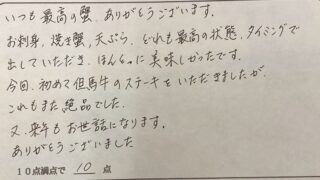 いつも最高の蟹、ありがとうございます。
お刺身、焼き蟹、天ぷら、どれも最高の状態、タイミングで
出していただき、ほんとに美味しかったです。
今回、初めて但馬牛のステーキをいただきましたが、
これもまた絶品でした。
又、来年もお世話になります。
ありがとうございました
10点満点で 10 点